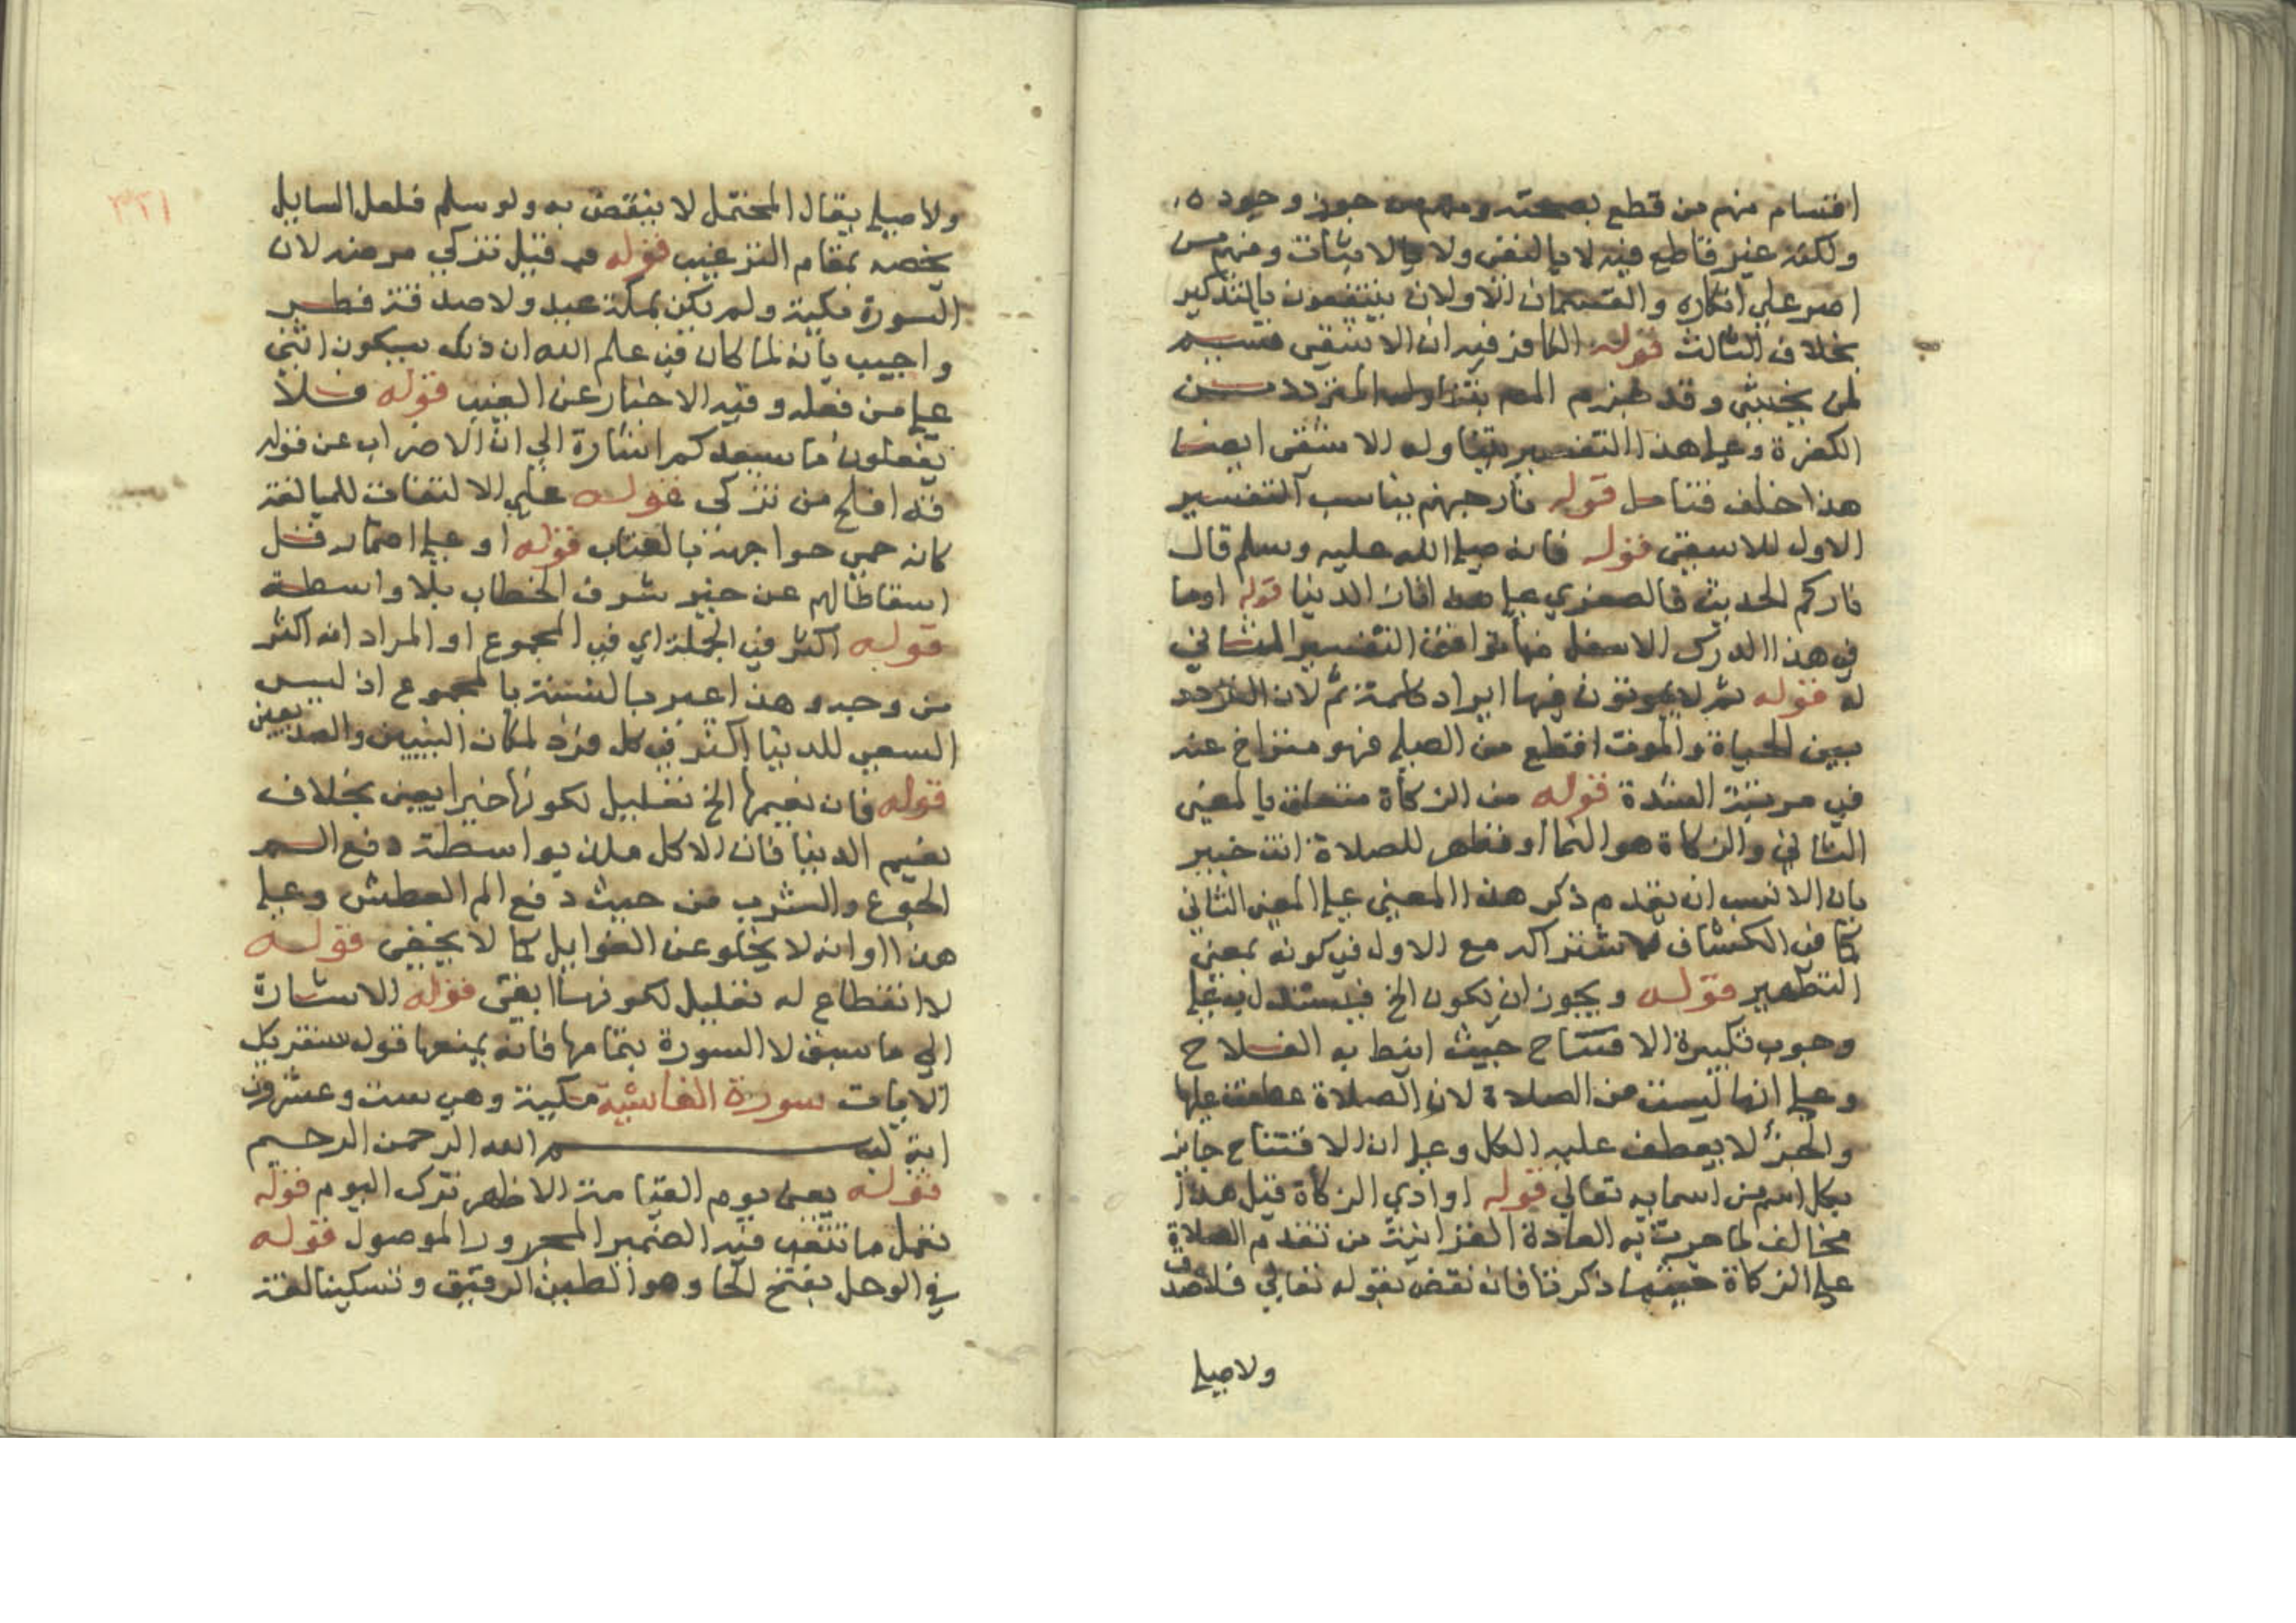 اقسام منهم من قطع بصحته ومنهم من جوز وجوده
ولكنه غير قاطع فيه لا بالنفي ولا بالاثبات ومنهم من
اصر علي انكاره والقسمان الاولان ينتفعون بالتذكير
بخلاف الثالث قوله الكافر فيه ان الاشقي قسيم
لمن يخشي وقد جزم المص بتناوله المتردد من
الكفرة وعلي هذا التفسير يتناوله الاشقي ايضا
هذا خلف فتامل قوله نار جهنم يناسب التفسير
الاول للاشقي قوله فانه صلي الله عليه وسلم قال
ناركم الحديث فالصغري علي هذا نار الدنيا قوله او ما
في هذا الدرك الاسفل منها يوافق التفسير الثاني
له قوله ثم لا يموتون فيها ايراد كلمة ثم لان التردد
بين الحياة والموت افظع من الصلي فهو متراخ عنه
في مرتبة الشدة قوله من الزكاة متعلق بالمعني
الثاني والزكاة هو النما او تطهر للصلاة انت خبير
بان الانسب ان يقدم ذكر هذا المعني علي المعني الثاني
كما في الكشاف لاشتراكه مع الاول في كونه بمعني
التطهير قوله ويجوز ان يكون الخ فيستدل به علي
وجوب تكبيرة الافتتاح حيث انيط به الفلاح
وعلي انها ليست من الصلاة لان الصلاة عطفت عليها
والجزء لا يعطف عليه الكل وعلي ان الافتتاح جايز
بكل اسم من اسمايه تعالي قوله او ادي الزكاة قيل هذا
مخالف لما جرت به العادة القرانية من تقدم الصلاة
علي الزكاة حيثما ذكرتا فانه نقض بقوله تعالي فلا صدق
ولا صلي
٣٢١
ولا صلي يقال المحتمل لا ينقض به ولو سلم فلعل السايل
يخصه بمقام الترغيب قوله قد قيل تزكي مرضه لان
السورة مكية ولم يكن بمكة عيد ولا صدقة فطر
واجيب بانه لما كان في علم الله ان ذلك سيكون اثني
علي من فعله وفيه الاخبار عن الغيب قوله فلا
تفعلون ما يسعدكم اشارة الي ان الاضراب عن قوله
قد افلح من تزكي قوله علي الالتفات للمبالغة
كانه حي حواجهة بالعتاب قوله او علي اضمار قل
اسقاطا لهم عن حيز شرف الخطاب بلا واسطة
قوله اكثر في الجملة اي في المجموع او المراد انه اكثر
من وجه وهذا اعم بالنسبة بالمجموع اذ ليس
السعي للدنيا اكثر في كل فرد لمكان النبيين والصديقين
قوله فان نعيمها الخ تعليل لكونها خيرا يعني بخلاف
نعيم الدنيا فان الاكل ملذ بواسطة دفع الم
الجوع والشرب من حيث دفع الم العطش وعلي
هذا وانه لا يخلو عن الغوايل كما لا يخفي قوله
لا انقطاع له تعليل لكونها ابقي قوله الاشارة
الي ما سبق لا السورة بتمامها فانه يمنعها قوله سنقريك
الايات سورة الغاشية مكية وهي ست وعشرون
اية بسم الله الرحمن الرحيم
قوله يعني يوم القيامة الاظهر ترك اليوم قوله
تعمل ما تتعب فيه الضمير المجرور الموصول قوله
في الوحل بفتح الحا وهو الطين الرقيق وتسكينها لغة